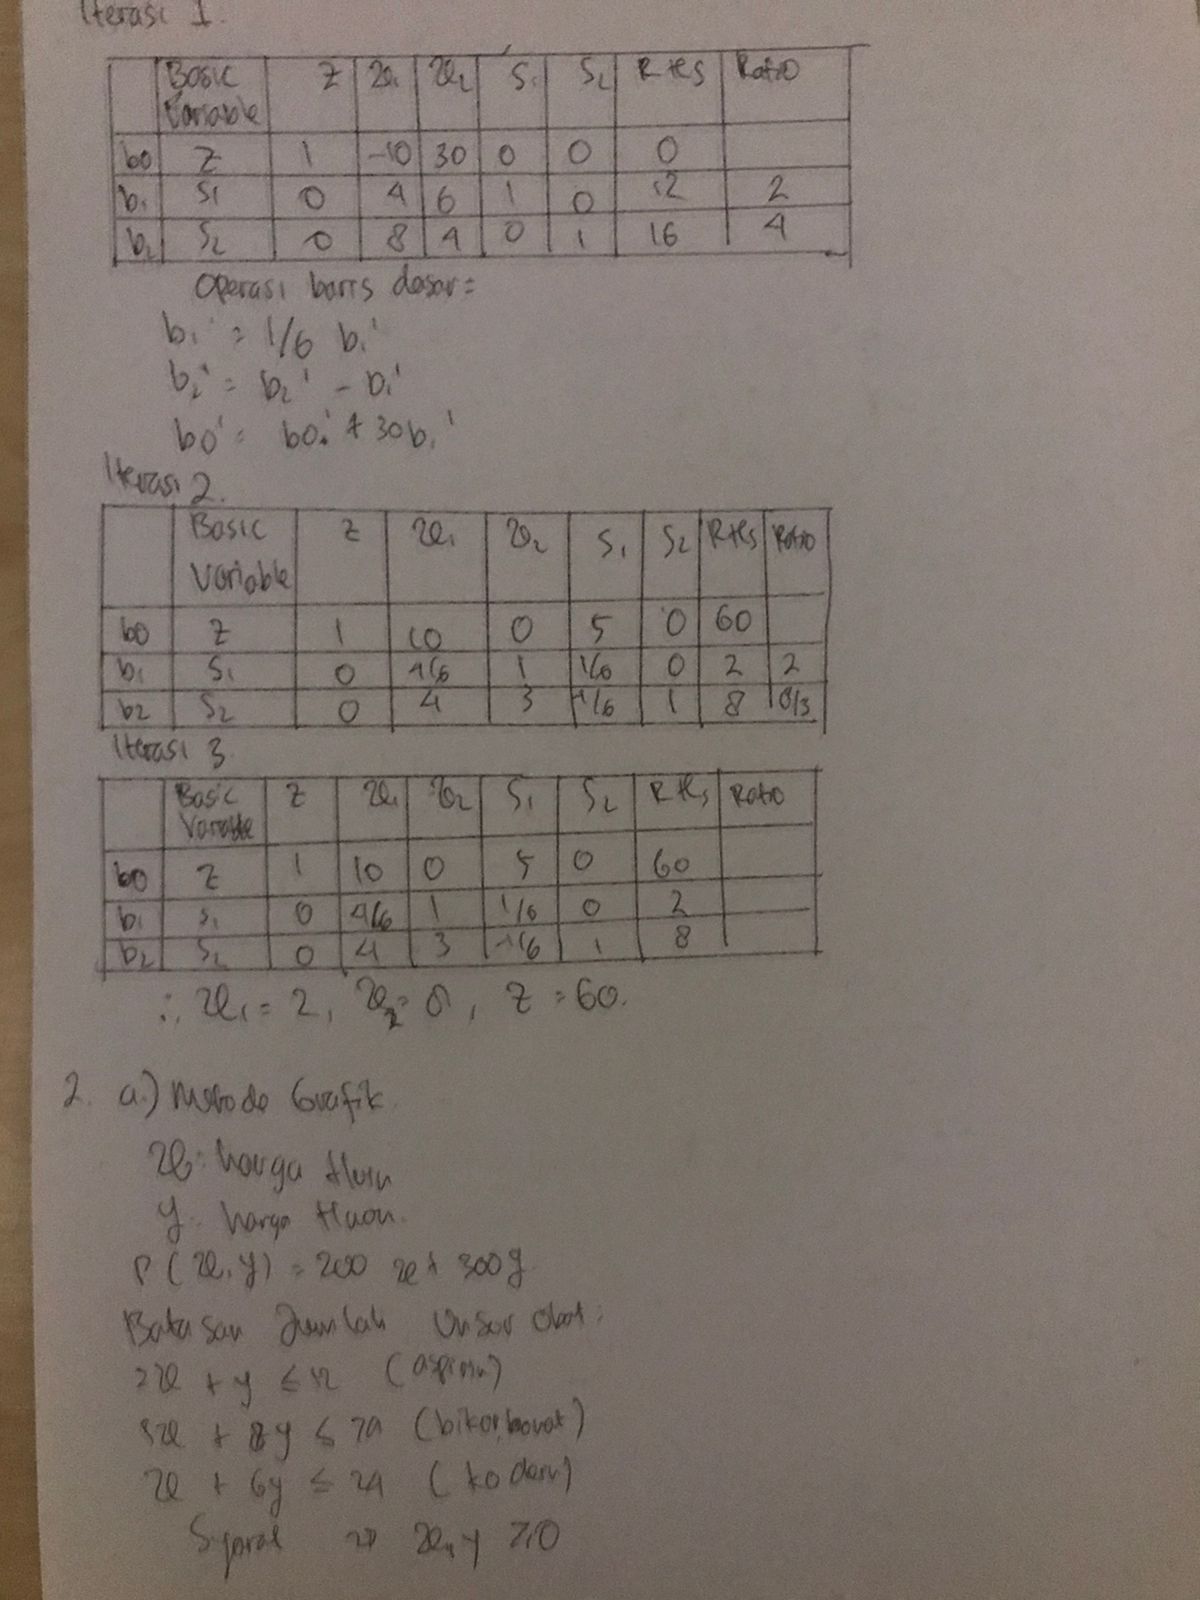 Iterasi 1
Basic Variable Z x₁ x₂ S₁ S₂ RHS Ratio
b0 Z 1 -10 30 0 0 0
b₁ S₁ 0 4 6 1 0 12 2
b₂ S₂ 0 8 4 0 1 16 4
Operasi baris dasar =
b₁' = 1/6 b₁'
b₂' = b₂' - b₁'
b0' = b0' + 30b₁'
Iterasi 2.
Basic Variable Z x₁ x₂ S₁ S₂ RHS Ratio
b0 Z 1 10 0 5 0 60
b₁ S₁ 0 4/6 1 1/6 0 2 2
b2 S₂ 0 4 3 -1/6 1 8 8/3
Iterasi 3
Basic Variable Z x₁ x₂ S₁ S₂ RHS Ratio
b0 Z 1 10 0 5 0 60
b₁ S₁ 0 4/6 1 1/6 0 2
b₂ S₂ 0 4 3 -1/6 1 8
∴ x₁ = 2, x₂ = 0, Z = 60.
2. a.) Metode Grafik
x : harga
y : harga
P(x,y) = 200 x + 300y
Batasan Jumlah Unsur Obat :
2x + y ≤ 12 (aspirin)
5x + 8y ≤ 74 (bikarbonat)
x + 6y ≤ 24 (kodein)
Syarat ⇒ x, y ≥ 0